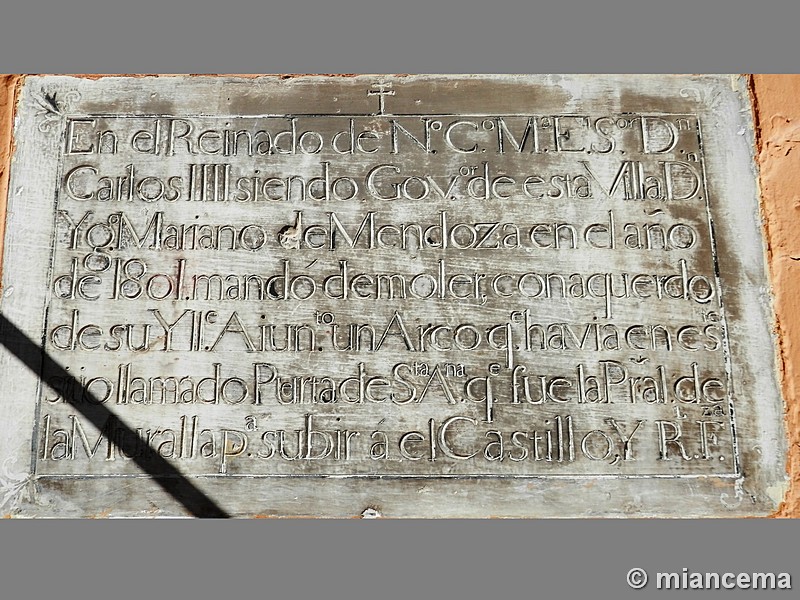 En el Reinado de N.º C.º M.ª E.l S.or D.n
Carlos IIII siendo Gov.or de esta Villa D.n
Yg.º Mariano de Mendoza en el año
de 1801. mandó demoler, con aquerdo
de su Yll.e Aiun.to un Arco q.e havia en es
sitio llamado Purta de S.ta A.na q.e fue la Pral. de
la Muralla p.a subir á el Castillo, Y R.l F.za
© miancema